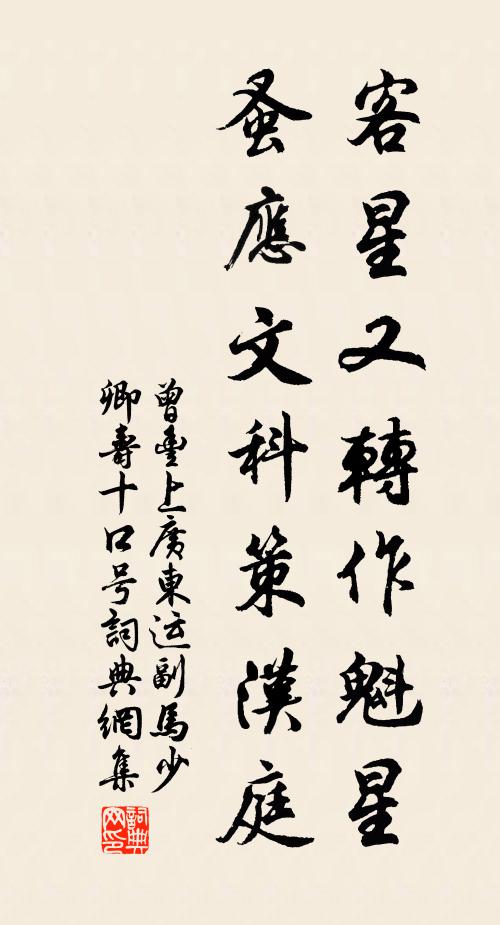 客星又轉作魁星
蚤應文科策漢庭
曾豐上廣東运副馬少
卿壽十口号詞典網集
詞典网印